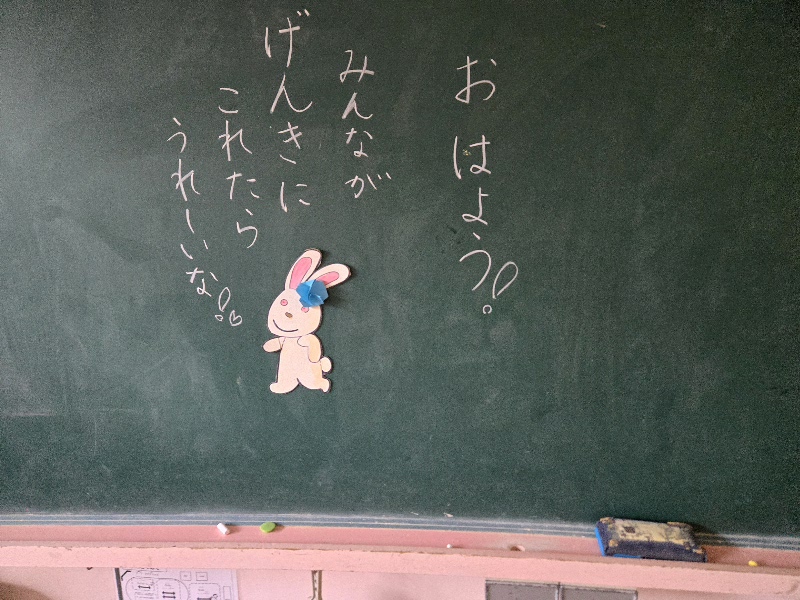 おはよう!
みんなが
げんきに
これたら
うれしいな!♡